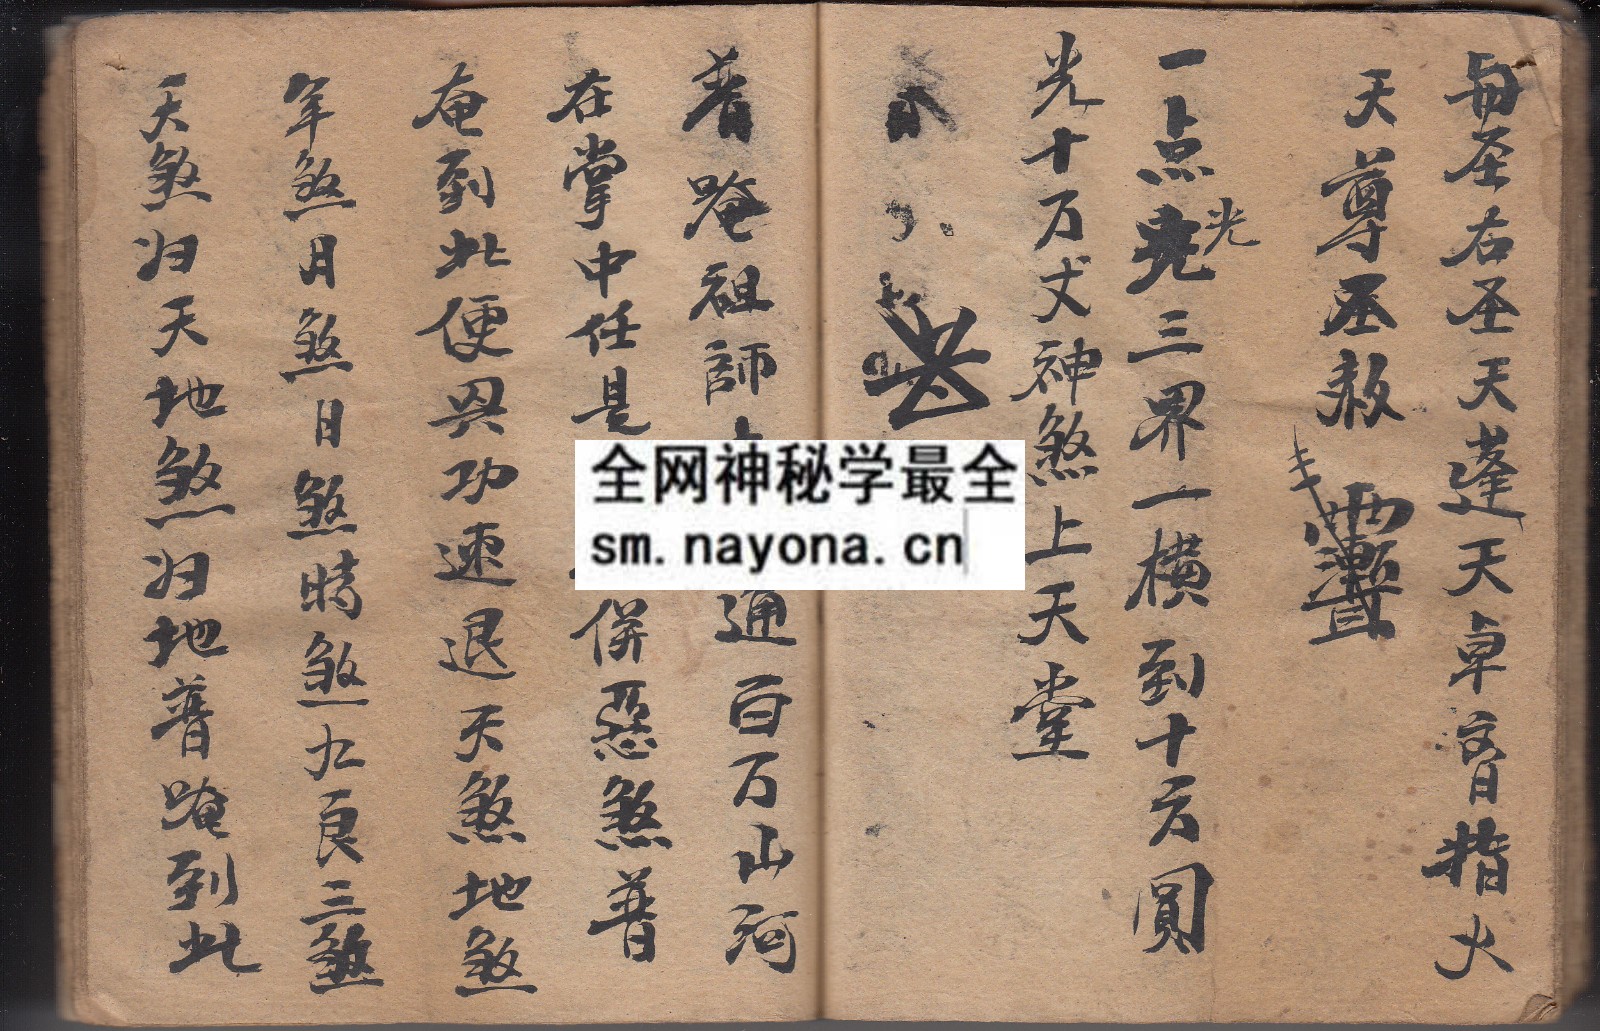 毋圣右圣天蓬天卓音指火
天尊圣赦
一点光三界一横到十方圓
光
光十万丈神煞上天堂
普唵祖師
通百万山河
在掌中任是
併惡煞普
奄到此便興功速退天煞地煞
年煞月煞日煞時煞九良三煞
天煞归天地煞归地普唵到此
全网神秘学最全
sm.nayona.cn